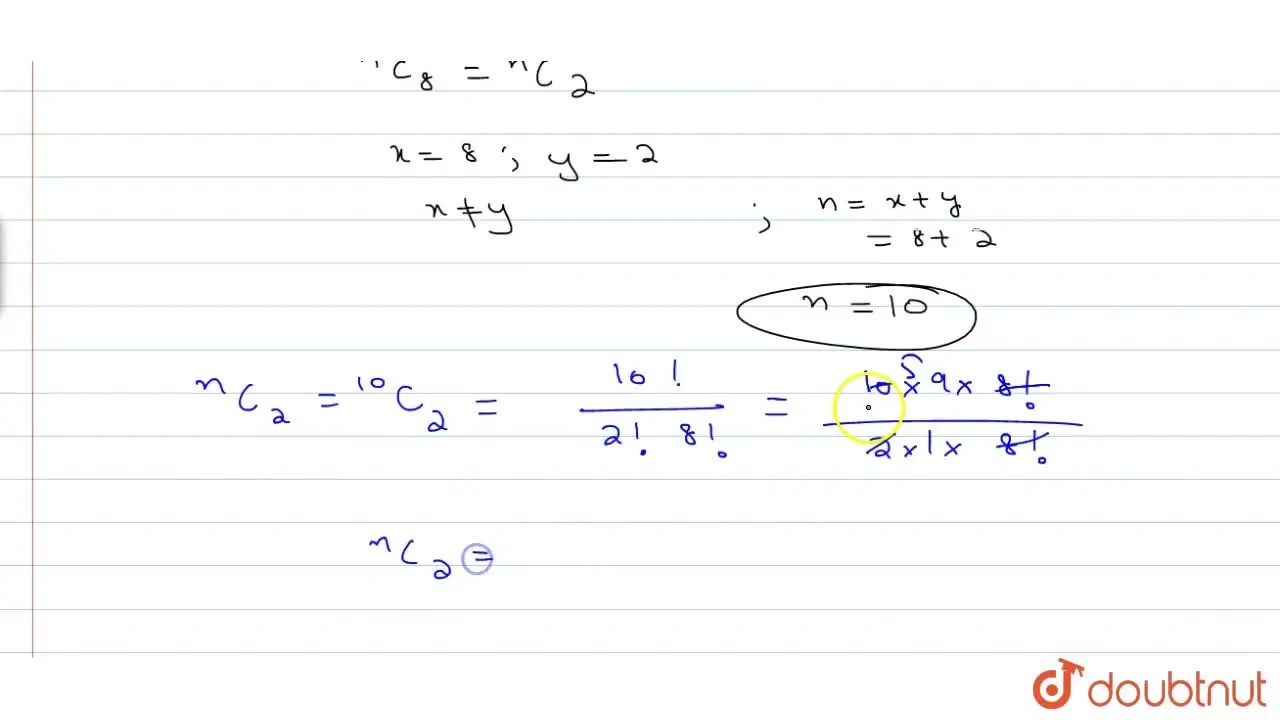 ⁿC₈ = ⁿC₂
x = 8 ; y = 2
x ≠ y ; n = x + y
= 8 + 2
n = 10
ⁿC₂ = ¹⁰C₂ = 10! / 2! 8! = 10 × 9 × 8! / 2 × 1 × 8!
5
ⁿC₂ =
doubtnut